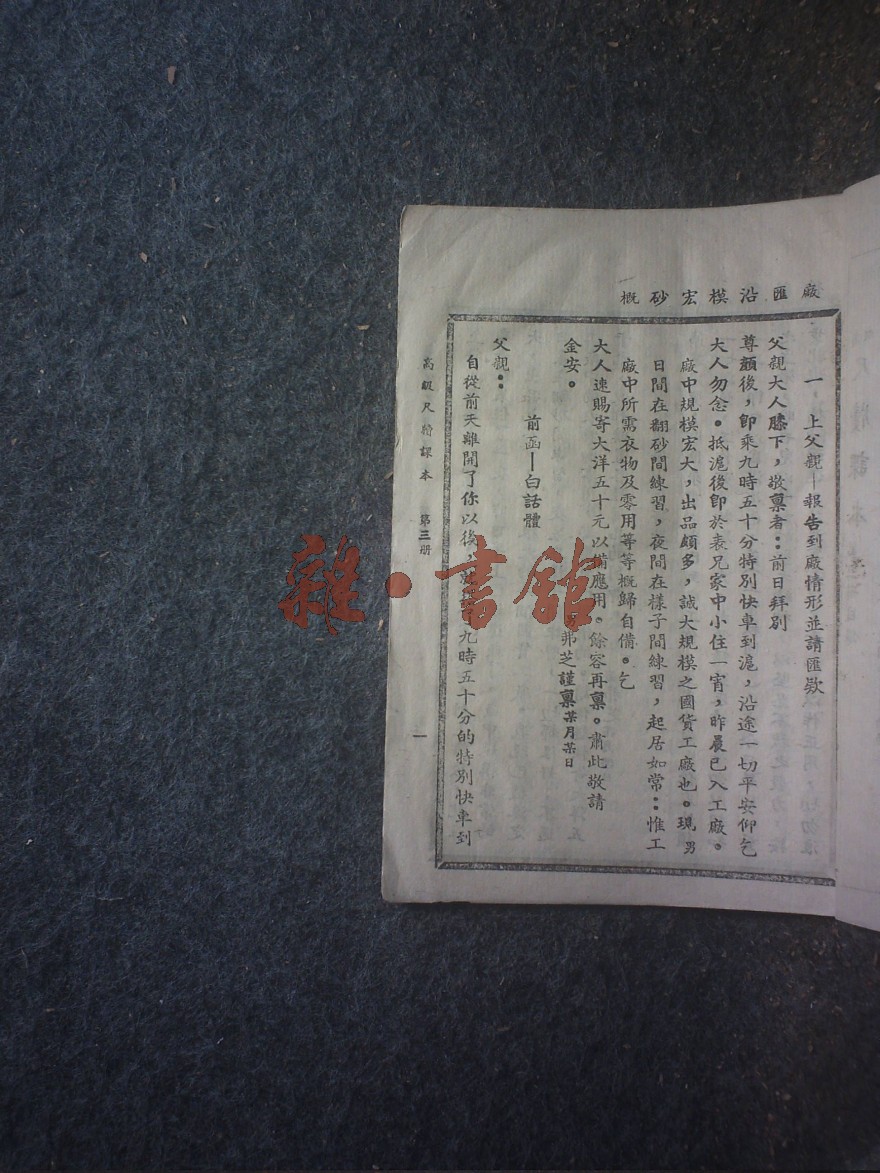 廠 匯 沿 模 宏 砂 概
一，上父親—報告到廠情形並請匯欵
父親大人膝下，敬稟者：前日拜別
尊顏後，卽乘九時五十分特別快車到滬，沿途一切平安仰乞
大人勿念。抵滬後卽於表兄家中小住一宵，昨晨已入工廠。
廠中規模宏大，出品頗多，誠大規模之國貨工廠也。現男
日間在翻砂間練習，夜間在樣子間練習，起居如常：惟工
廠中所需衣物及零用等等概歸自備。乞
大人速賜寄大洋五十元以備應用。餘容再稟。肅此敬請
金安。
弗芝謹稟某月某日
前函—白話體
父親：
自從前天離開了你以後，九時五十分的特別快車到
高級尺牘課本 第三册
一
雜·書館